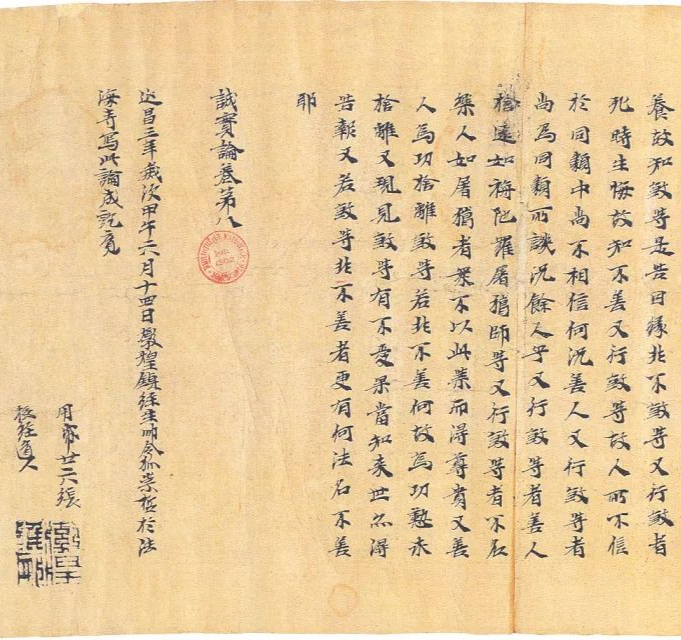 養故知煞等是苦因緣非不煞等又行煞者
死時生悔故知不善又行煞等故人所不信
於同類中尚不相信何況善人又行煞等者
尚為同類所譏況餘人乎又行煞等者善人
捨遠如旃陀羅屠獵師等又行煞等者不名
樂人如屠獵者不以此業而得尊貴又善
人為功捨離煞等若非不善何故為功懃求
捨離又現見煞等有不愛果當知来世亦得
苦報又若煞等非不善者更有何法名不善
耶
誠實論卷第八
延昌三年歲次甲午六月十四日敦煌鎮經生師令狐崇哲於法
海寺寫此論成訖竟
用紙廿六張
校經道人